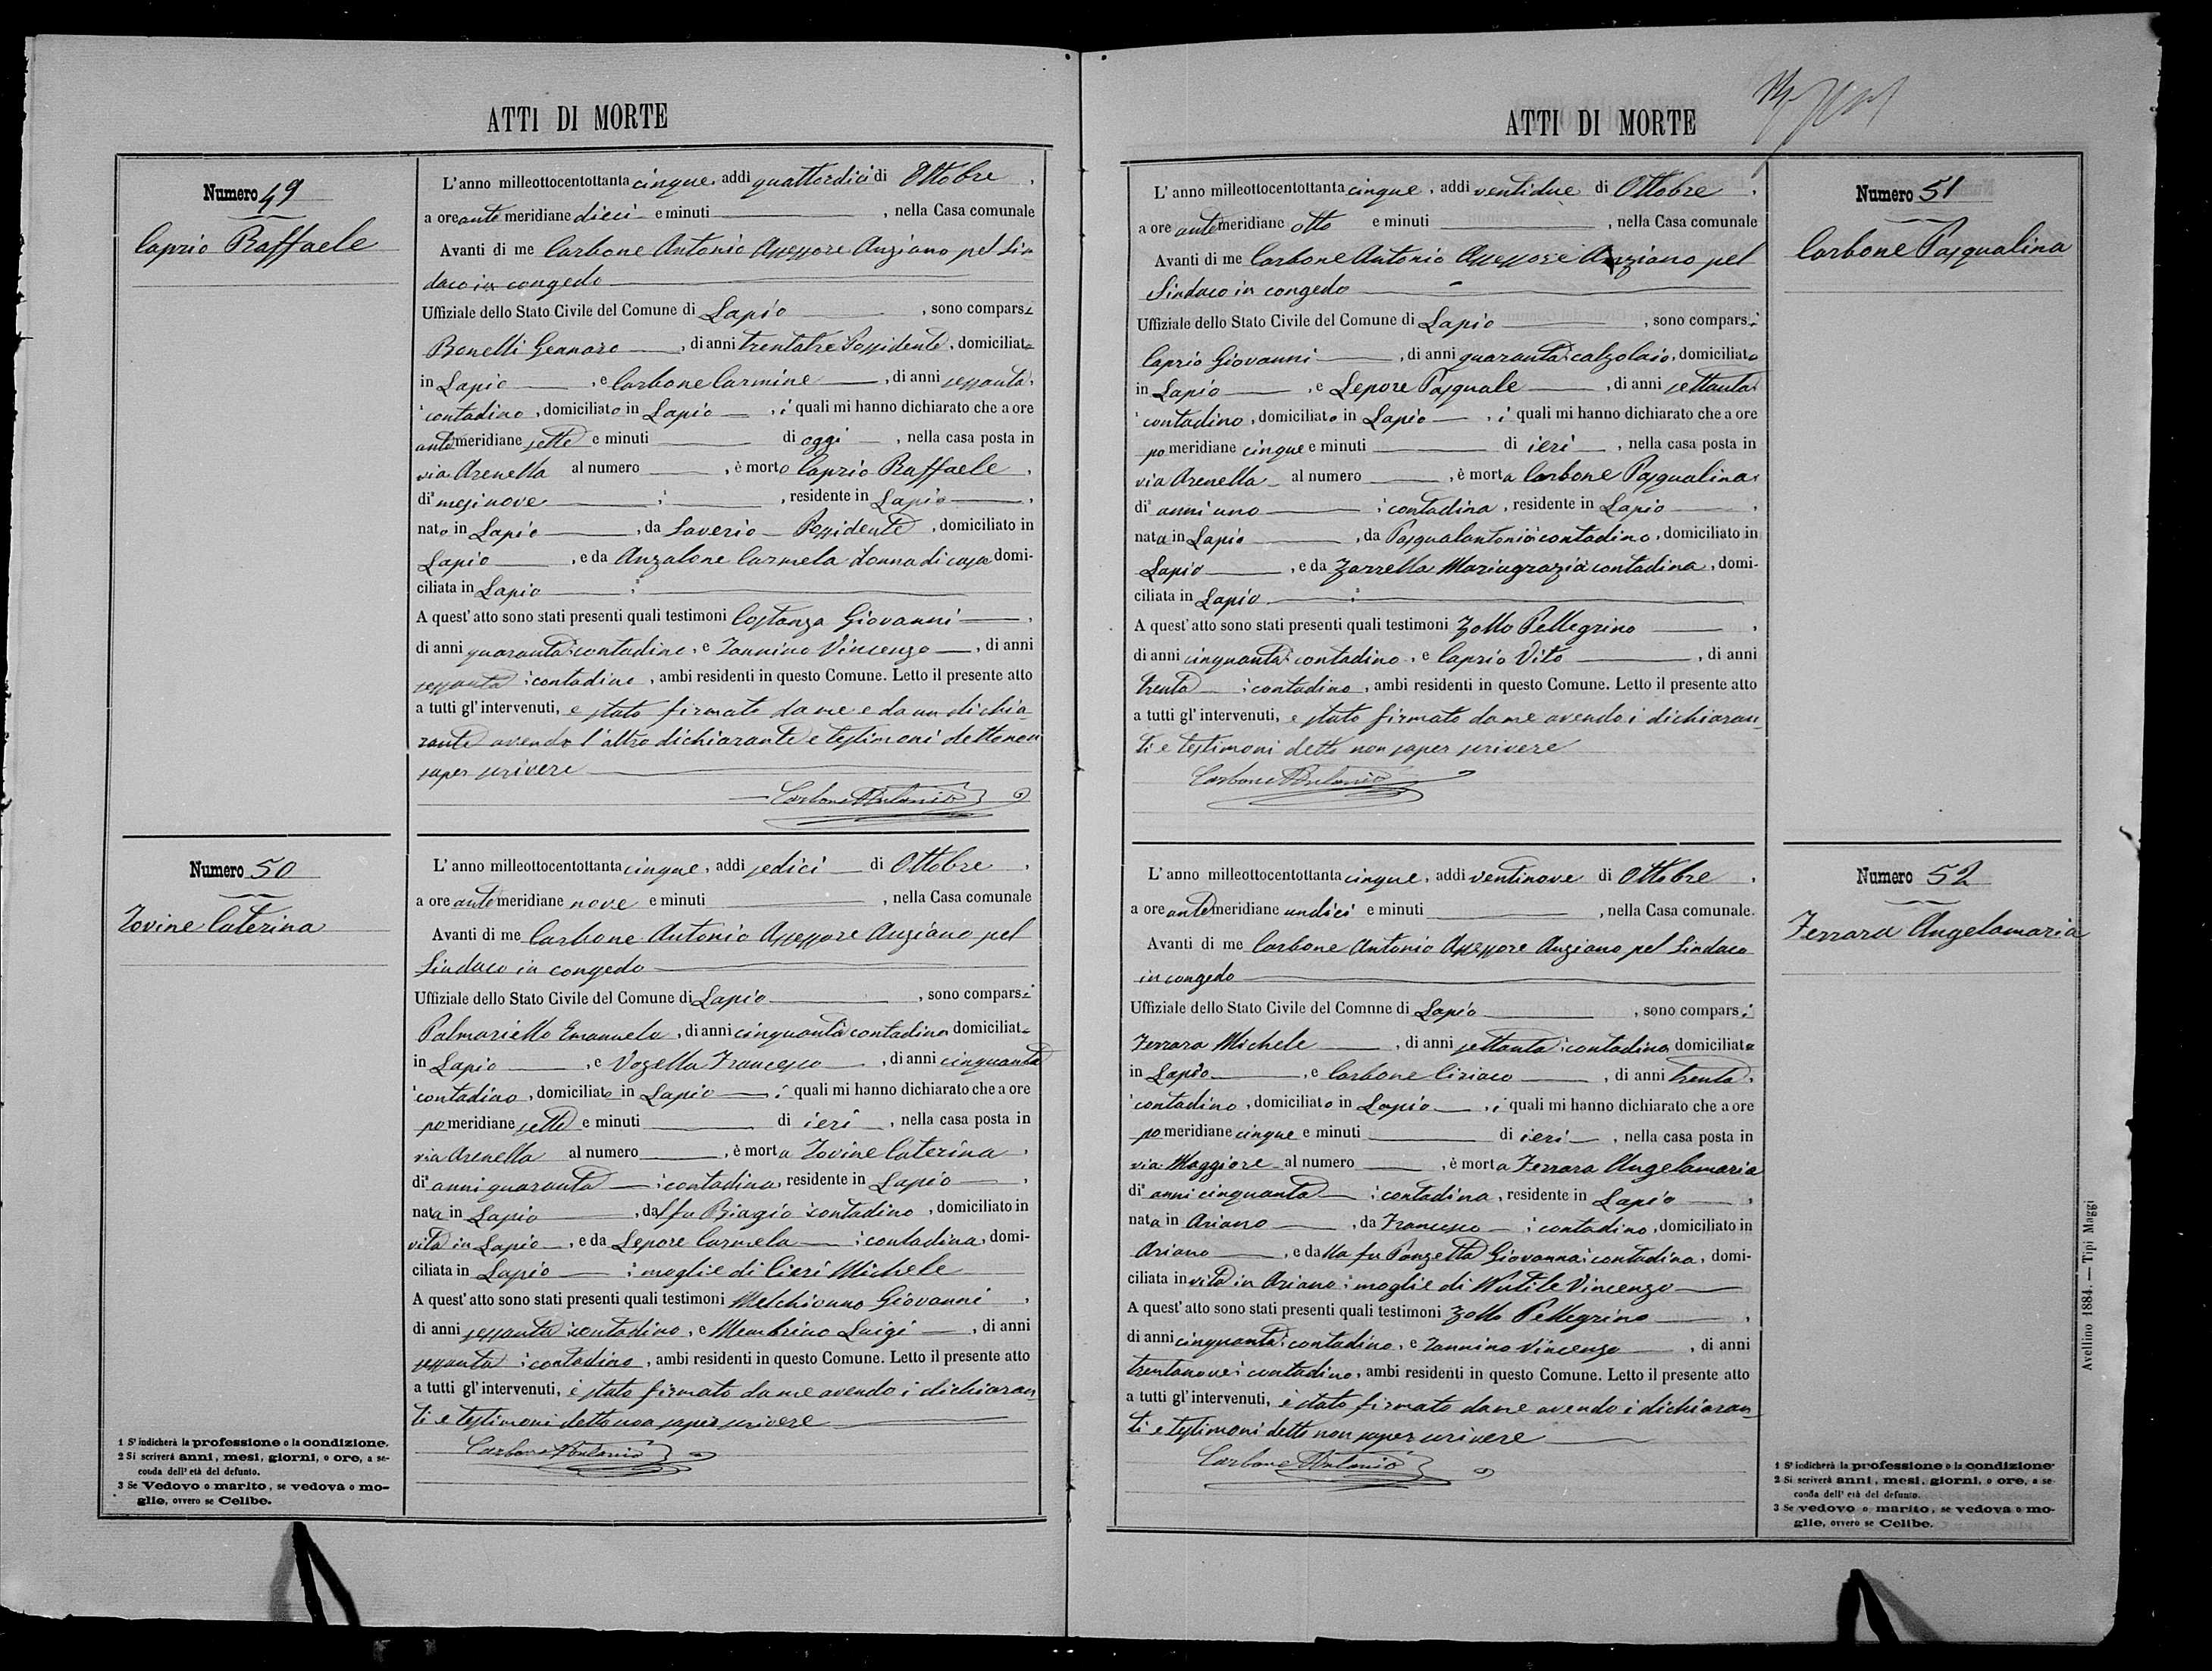 ATTI DI MORTE
Numero 49
Caprio Raffaele
L'anno milleottocentottanta cinque, addi quattordici di Ottobre,
a ore ante meridiane dieci e minuti , nella Casa comunale
Avanti di me Carbone Antonio Assessore Anziano pel Sin
daco in congedo
Uffiziale dello Stato Civile del Comune di Lapio , sono comparsi
Bonelli Gennaro , di anni trentatre Possidente, domiciliato
in Lapio , e Carbone Carmine , di anni sessanta,
contadino, domiciliato in Lapio , i quali mi hanno dichiarato che a ore
ante meridiane sette e minuti di oggi , nella casa posta in
via Arenella al numero , è morto Caprio Raffaele,
di mesi nove ; , residente in Lapio ,
nato in Lapio , da Saverio Possidente, domiciliato in
Lapio , e da Anzalone Carmela donna di casa domi-
ciliata in Lapio ;
A quest' atto sono stati presenti quali testimoni Costanza Giovanni ,
di anni quaranta contadino, e Iannino Vincenzo , di anni
sessanta contadino, ambi residenti in questo Comune. Letto il presente atto
a tutti gl' intervenuti, e stato firmato da me e da un dichia-
rante avendo l'altro dichiarante e testimoni detto non
saper scrivere
Carbone Antonio
Numero 50
Iovine Caterina
L' anno milleottocentottanta cinque, addi sedici di Ottobre,
a ore ante meridiane nove e minuti , nella Casa comunale
Avanti di me Carbone Antonio Assessore Anziano pel
Sindaco in congedo
Uffiziale dello Stato Civile del Comune di Lapio , sono comparsi
Palmariello Emanuela, di anni cinquanta contadino domiciliato
in Lapio , e Vozella Francesco , di anni cinquanta
contadino, domiciliato in Lapio ; i quali mi hanno dichiarato che a ore
po meridiane sette e minuti di ieri , nella casa posta in
via Arenella al numero , è morta Iovine Caterina,
di anni quaranta ; contadina, residente in Lapio ,
nata in Lapio , dal fu Biagio contadino, domiciliato in
vita in Lapio , e da Lepore Carmela ; contadina, domi-
ciliata in Lapio ; moglie di Cieri Michele
A quest' atto sono stati presenti quali testimoni Melchionno Giovanni ,
di anni sessanta contadino, e Membrino Luigi , di anni
sessanta ; contadino, ambi residenti in questo Comune. Letto il presente atto
a tutti gl' intervenuti, è stato firmato da me avendo i dichiaran
ti e testimoni detto non saper scrivere
Carbone Antonio
1 S' indicherà la professione o la condizione.
2 Si scriverà anni, mesi, giorni, o ore, a se-
conda dell' età del defunto.
3 Se Vedovo o marito, se vedova o mo-
glie, ovvero se Celibe.
ATTI DI MORTE
Numero 51
Carbone Pasqualina
L' anno milleottocentottanta cinque, addi ventidue di Ottobre,
a ore ante meridiane otto e minuti , nella Casa comunale
Avanti di me Carbone Antonio Assessore Anziano pel
Sindaco in congedo
Uffiziale dello Stato Civile del Comune di Lapio , sono comparsi
Caprio Giovanni , di anni quaranta calzolaio, domiciliato
in Lapio , e Lepore Pasquale , di anni settanta
contadino, domiciliato in Lapio , i quali mi hanno dichiarato che a ore
po meridiane cinque e minuti di ieri , nella casa posta in
via Arenella al numero , è morta Carbone Pasqualina,
di anni uno ; contadina, residente in Lapio ,
nata in Lapio , da Pasqualantonio contadino, domiciliato in
Lapio , e da Zarrella Mariagrazia contadina, domi-
ciliata in Lapio ;
A quest' atto sono stati presenti quali testimoni Zollo Pellegrino ,
di anni cinquanta contadino, e Caprio Vito , di anni
trenta ; contadino, ambi residenti in questo Comune. Letto il presente atto
a tutti gl' intervenuti, e stato firmato da me avendo i dichiaran
ti e testimoni detto non saper scrivere
Carbone Antonio
Numero 52
Ferrara Angelamaria
L' anno milleottocentottanta cinque, addi ventinove di Ottobre,
a ore ante meridiane undici e minuti , nella Casa comunale.
Avanti di me Carbone Antonio Assessore Anziano pel Sindaco
in congedo
Uffiziale dello Stato Civile del Comnne di Lapio , sono comparsi
Ferrara Michele , di anni settanta contadino, domiciliato
in Lapio , e Carbone Ciriaco , di anni trenta,
contadino, domiciliato in Lapio , i quali mi hanno dichiarato che a ore
po meridiane cinque e minuti di ieri , nella casa posta in
via Maggiore al numero , è morta Ferrara Angelamaria
di anni cinquanta ; contadina, residente in Lapio ,
nata in Ariano , da Francesco ; contadino, domiciliato in
Ariano , e dalla fu Panzetta Giovanna contadina, domi-
ciliata in vita in Ariano ; moglie di Nutile Vincenzo
A quest' atto sono stati presenti quali testimoni Zollo Pellegrino ,
di anni cinquanta contadino, e Iannino Vincenzo , di anni
trentanove contadino, ambi residenti in questo Comune. Letto il presente atto
a tutti gl' intervenuti, è stato firmato da me avendo i dichiaran
ti e testimoni detto non saper scrivere
Carbone Antonio
1 S' indicherà la professione o la condizione
2 Si scriverà anni, mesi, giorni, o ore, a se-
conda dell' età del defunto.
3 Se vedovo o marito, se vedova o mo-
glie, ovvero se Celibe.
Avellino 1884. — Tipi Maggi